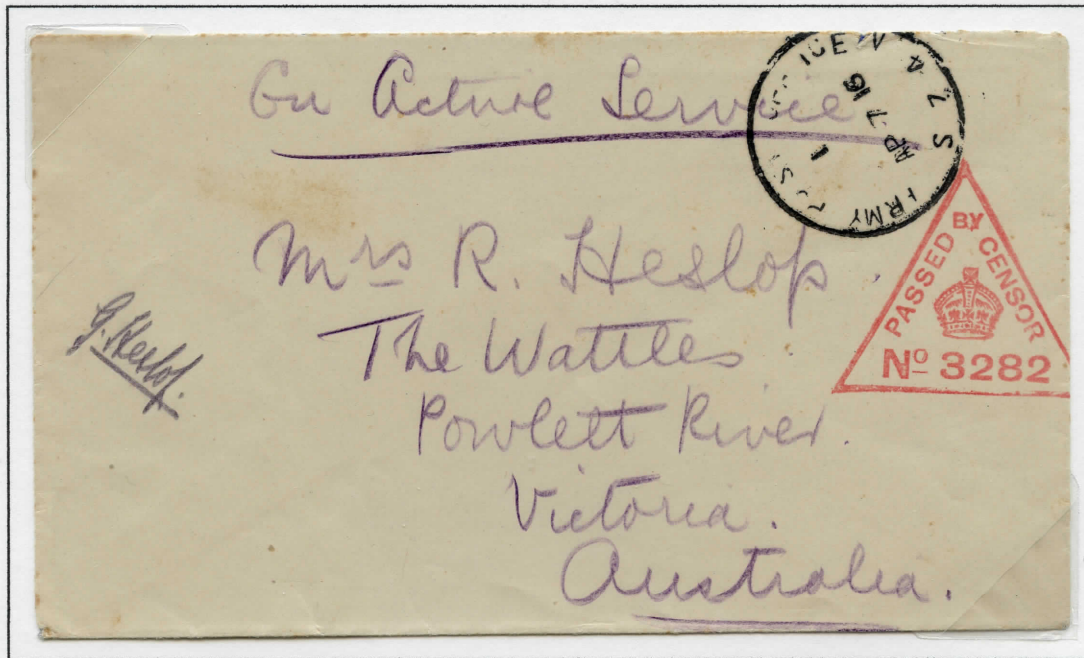 On Active Service
ARMY POST OFFICE
S Z 4
1
AP 7 16
PASSED BY CENSOR
Nº 3282
Mrs R. Heslop.
The Wattles
Powlett River.
Victoria.
Australia.
G. Heslop.